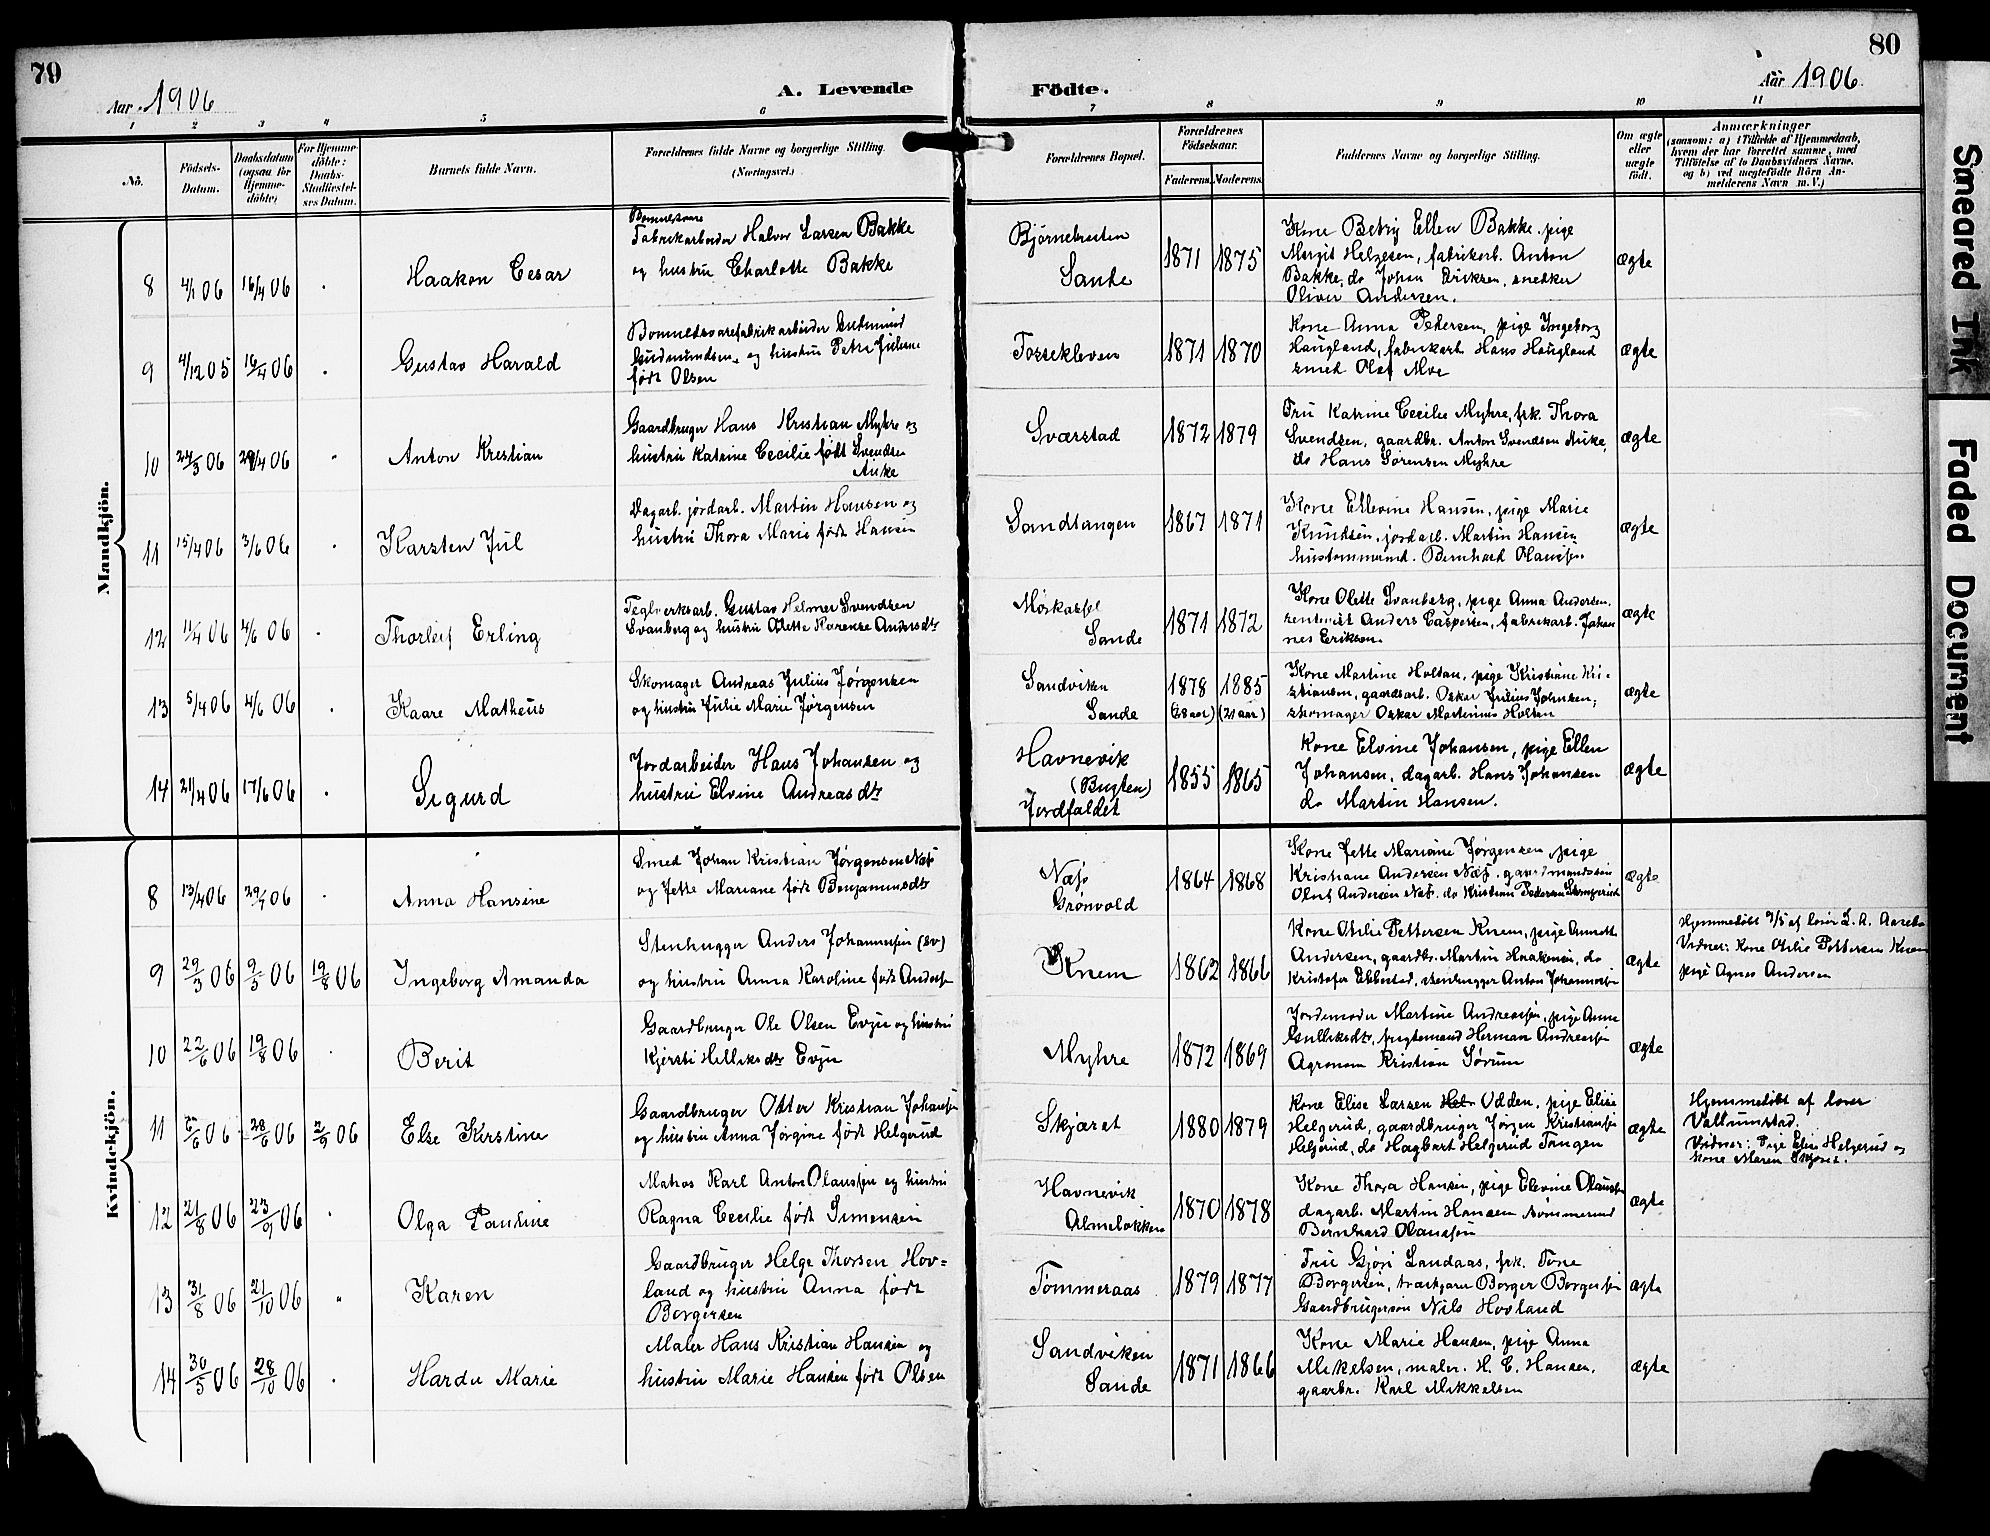 79
80
Aar 1906
A. Levende
Födte.
Aar 1906
1 2 3 4 5 6 7 8 9 10 11
No.
Födsels-
Datum.
Daabsdatum
(ogsaa for
Hjemme-
döbte)
For Hjemme-
döbte:
Daabs-
Stadfæstel-
ses Datum.
Barnets fulde Navn.
Forældrenes fulde Navne og borgerlige Stilling.
(Næringsvei.)
Forældrenes Bopæl.
Forældrenes
Födselsaar.
Faderens. Moderens.
Faddernes Navne og borgerlige Stilling.
Om ægte
eller
uægte
födt.
Anmærkninger
(saasom: a) i Tilfælde af Hjemmedaab,
hvem der har forrettet samme, med
Tilföielse af to Daabsvidners Navne,
og b) ved uægtefödte Börn An-
melderens Navn m. V.)
Mandkjön.
8 4/1 06 16/4 06 Haakon Cesar
Bomuldsvare
Fabrikarbeider Halvor Larsen Bakke
og hustru Charlotte Bakke
Bjørnebresten
Sande
1871 1875
Kone Betsy Ellen Bakke, pige
Margit Helgesen, fabrikarb. Anton
Bakke, do Johan Eriksen, snedker
Oliver Andersen.
ægte
9 4/12 05 16/4 06 Gustav Harald
Bomuldsvarefabrikarbeider Gudmund
Gudmundsen og hustru Petra Juline
født Olsen
Fossekleven
1871 1870
Kone Anna Pedersen, pige Ingeborg
Haugland, fabrikarb. Hans Haugland
smed Olaf Moe
ægte
10 24/3 06 29/4 06 Anton Kristian
Gaardbruger Hans Kristian Myhre og
hustru Katrine Cecilie født Svendsen
Auke
Svarstad
1872 1879
Fru Katrine Cecilie Myhre, frk. Thora
Svendsen, gaardbr. Anton Svendsen Auke,
do Hans Sørensen Myhre
ægte
11 15/4 06 3/6 06 Karsten Jul
Dagarb. jordarb. Martin Hansen og
hustru Thora Marie født Hansen
Sandtangen
1867 1871
Kone Ellevine Hansen, pige Marie
Knudsen, jordarb. Martin Hansen
hustømmrmd. Bernhard Olaussen
ægte
12 11/4 06 4/6 06 Thorleif Erling
Teglverksarb. Gustav Helmer Svendsen
Svanberg og hustru Olette Karense Andersdtr
Mørkassel
Sande
1871 1872
Kone Olette Svanberg, pige Anna Andersen,
rentenist Anders Caspersen, fabrikarb. Johan
nes Eriksen.
ægte
13 5/4 06 4/6 06 Kaare Matheus
Skomager Andreas Julius Jørgensen
og hustru Julie Marie Jørgensen
Sandviken
Sande
1878 1885
(28 aar) (21 aar)
Kone Martine Holtan, pige Kristiane Kri-
stiansen, gaardsarb. Oskar Julius Johnsen,
skomager Oskar Martinius Holtan
ægte
14 21/4 06 17/6 06 Sigurd
Jordarbeider Hans Johansen og
hustru Elvine Andreasdtr
Havnevik
(Bugten)
Jordfaldet
1855 1865
Kone Elvine Johansen, pige Ellen
Johansen, dagarb. Hans Johansen
do Martin Hansen.
ægte
Kvindekjön.
8 13/4 06 29/4 06 Anna Hansine
Smed Johan Kristian Jørgensen Næs
og Jette Mariane født Benjaminsdtr
Næs
Grønvold
1864 1868
Kone Jette Mariane Jørgensen, pige
Kristiane Andersen Næs, gaardmandssøn
Olaf Andersen Næs, do Kristian Pedersen
ægte
9 29/3 06 9/5 06 19/8 06 Ingeborg Amanda
Stenhugger Anders Johannesen (sv)
og hustru Anna Karoline født Andersen
Knem
1862 1866
Kone Otilie Pettersen Knem, pige Annette
Andersen, gaardbr. Martin Haakensen, do
Kristofer Ebbestad, stenhugger Anton Johannesen
ægte
Hjemmedøbt 9/5 af lærer L. A. Aarebo
Vidner: Kone Otilie Pettersen Knem
pige Agnes Andersen
10 22/6 06 19/8 06 Berit
Gaardbruger Ole Olsen Evju og hustru
Kjersti Helliksdtr Evju
Myhre
1872 1869
Jordemoder Martine Andreassen, pige Anne
Gulliksdtr, Herman Andreassen
Agronom Kristian Sørum
ægte
11 6/6 06 28/6 06 2/9 06 Else Kirstine
Gaardbruger Otter Kristian Johansen
og hustru Anna Jørgine født Helgerud
Skjæret
1880 1879
Kone Elise Larsen Odden, pige Elise
Helgerud, gaardbruger Jørgen Kristiansen
Helgerud, do Hagbart Helgerud Tangen
ægte
Hjemmedøbt af lærer
Vallumstad.
Vidner: Pige Elise Helgerud og
Kone Maren Skjæret.
12 21/8 06 23/9 06 Olga Pauline
Matros Karl Anton Olaussen og hustru
Ragna Cecilie født Simensen
Havnevik
Almeløkken
1870 1878
Kone Thora Hansen, pige Elevine Olaussen
dagarb. Martin Hansen tømmermd
Bernhard Olaussen
ægte
13 31/8 06 21/10 06 Karen
Gaardbruger Helge Thorsen Hov=
land og hustru Anna født
Borgersen
Tømmeraas
1879 1877
Fru Gjøri Landaas, frk. Tone
Borgersen, Borger Borgersen
Gaardbrugersøn Nils Hovland
ægte
14 30/5 06 28/10 06 Hardu Marie
Maler Hans Kristian Hansen og
hustru Marie Hansen født Olsen
Sandviken
Sande
1871 1866
Kone Marie Hansen, pige Anna
Mikelsen, maler. H. C. Hansen.
gaarbr. Karl Mikkelsen
ægte
Smeared Ink
Faded Document